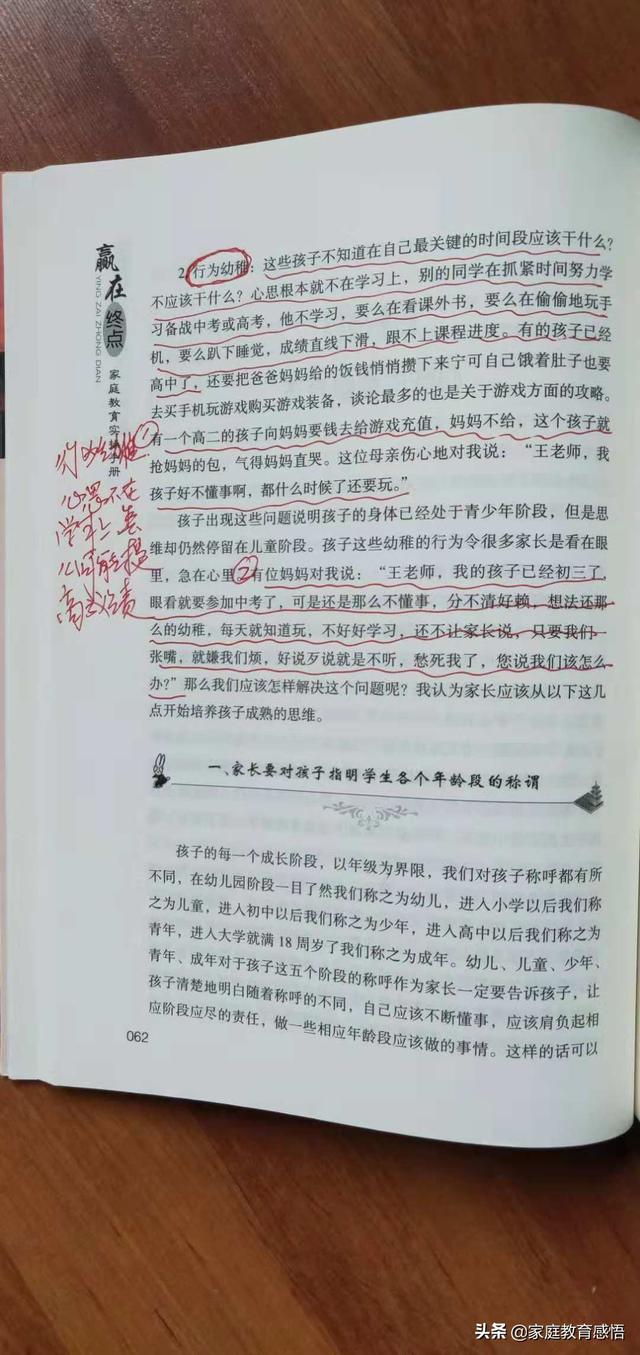 赢在终点
YING ZAI ZHONG DIAN
家庭教育实操手册
2.行为幼稚：这些孩子不知道在自己最关键的时间段应该干什么？
不应该干什么？心思根本就不在学习上，别的同学在抓紧时间努力学
习备战中考或高考，他不学习，要么在看课外书，要么在偷偷地玩手
机，要么趴下睡觉，成绩直线下滑，跟不上课程进度。有的孩子已经
高中了，还要把爸爸妈妈给的饭钱悄悄攒下来宁可自己饿着肚子也要
去买手机玩游戏购买游戏装备，谈论最多的也是关于游戏方面的攻略。
有一个高二的孩子向妈妈要钱去给游戏充值，妈妈不给，这个孩子就
抢妈妈的包，气得妈妈直哭。这位母亲伤心地对我说：“王老师，我
孩子好不懂事啊，都什么时候了还要玩。”
孩子出现这些问题说明孩子的身体已经处于青少年阶段，但是思
维却仍然停留在儿童阶段。孩子这些幼稚的行为令很多家长是看在眼
里，急在心里②有位妈妈对我说：“王老师，我的孩子已经初三了，
眼看就要参加中考了，可是还是那么不懂事，分不清好赖，想法还那
么的幼稚，每天就知道玩，不好好学习，还不让家长说，只要我们一
张嘴，就嫌我们烦，好说歹说就是不听，愁死我了，您说我们该怎么
办？”那么我们应该怎样解决这个问题呢？我认为家长应该从以下这几
点开始培养孩子成熟的思维。
行为幼稚①
心思不在
学习上
一、家长要对孩子指明学生各个年龄段的称谓
孩子的每一个成长阶段，以年级为界限，我们对孩子称呼都有所
不同，在幼儿园阶段一目了然我们称之为幼儿，进入小学以后我们称
之为儿童，进入初中以后我们称之为少年，进入高中以后我们称之为
青年，进入大学就满18周岁了我们称之为成年。幼儿、儿童、少年、
青年、成年对于孩子这五个阶段的称呼作为家长一定要告诉孩子，让
孩子清楚地明白随着称呼的不同，自己应该不断懂事，应该肩负起相
应阶段应尽的责任，做一些相应年龄段应该做的事情。这样的话可以
062
头条 @家庭教育感悟